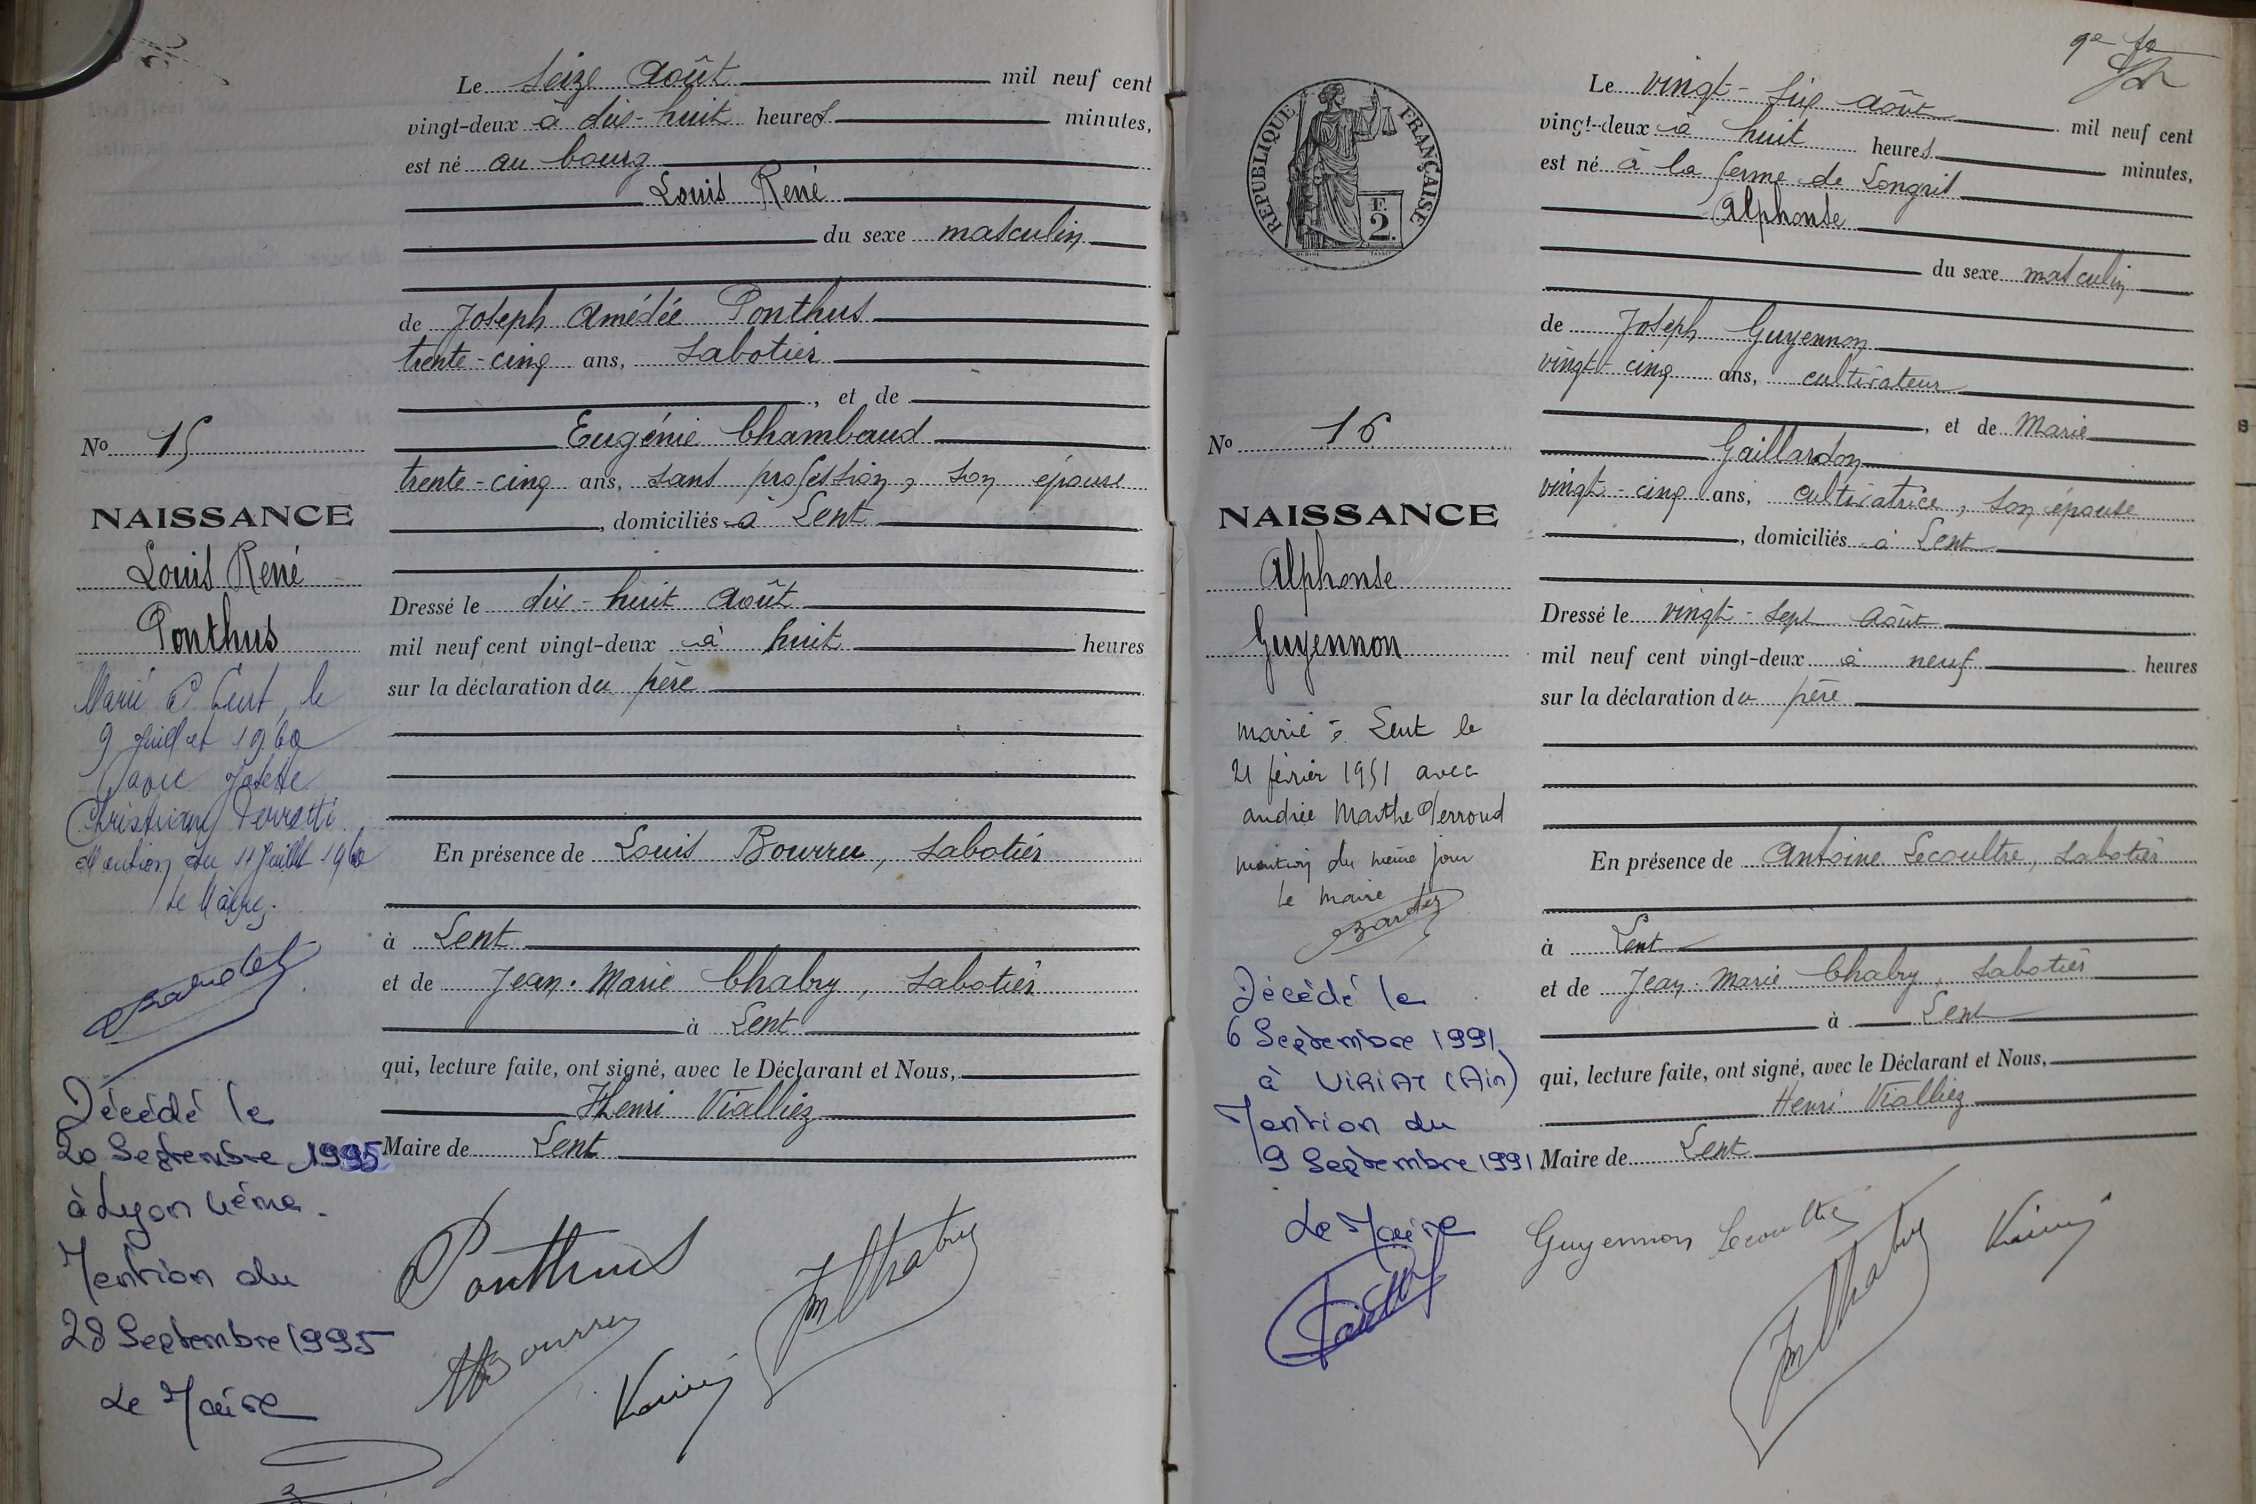 Le seize août mil neuf cent
vingt-deux à dix-huit heures minutes,
est né au bourg
Louis René
du sexe masculin
de Joseph Amédée Ponthus
trente-cinq ans, sabotier
, et de
Eugénie Chambaud
trente-cinq ans, sans profession, son épouse
, domiciliés à Lent
Dressé le dix-huit août
mil neuf cent vingt-deux à huit heures
sur la déclaration du père
En présence de Louis Bourru, sabotier
à Lent
et de Jean-Marie Chabry, sabotier
à Lent
qui, lecture faite, ont signé, avec le Déclarant et Nous,
Henri Vialliez
Maire de Lent
Ponthus
Bourru
JM Chabry
No 15
NAISSANCE
Louis René
Ponthus
Marié à Lent, le
9 Juillet 1960
avec Josette
Mention du 11 Juillet 1960
Le Maire.
Décédé le
20 Septembre 1995
à Lyon 4ème.
Mention du
28 Septembre 1995
Le Maire
RÉPUBLIQUE FRANÇAISE
F.
2.
No 16
NAISSANCE
Alphonse
Guyennon
marié à Lent le
21 février 1951 avec
andrée Marthe Perroud
mention du même jour
le maire
Décédé le
6 Septembre 1991
à VIRIAT (Ain)
Mention du
9 Septembre 1991
Le Maire
Le vingt-six août mil neuf cent
vingt-deux à huit heures minutes,
est né à la ferme de Longris
Alphonse
du sexe masculin
de Joseph Guyennon
vingt-cinq ans, cultivateur
, et de Marie
Gaillardon
vingt-cinq ans, cultivatrice, son épouse
, domiciliés à Lent
Dressé le vingt-sept août
mil neuf cent vingt-deux à neuf heures
sur la déclaration du père
En présence de Antoine Lecoultre, sabotier
à Lent
et de Jean-Marie Chabry, sabotier
à Lent
qui, lecture faite, ont signé, avec le Déclarant et Nous,
Henri Vialliez
Maire de Lent
Guyennon Lecoultre
JM Chabry